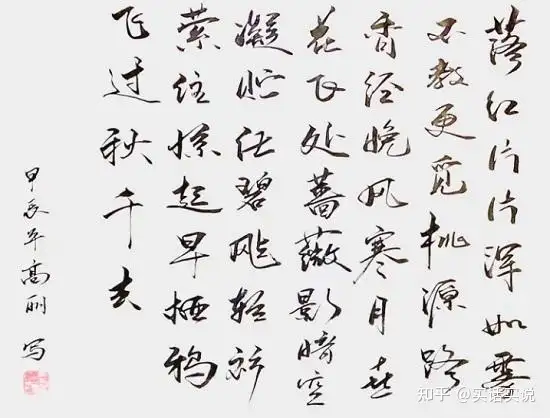 落红片片浑如雾
不教更觅桃源路
香径晚风寒月在
花飞处蔷薇影暗空
凝伫任碧飐轻衫
萦住惊起早栖鸦
飞过秋千去
甲辰年高丽写
知乎 @实话实说